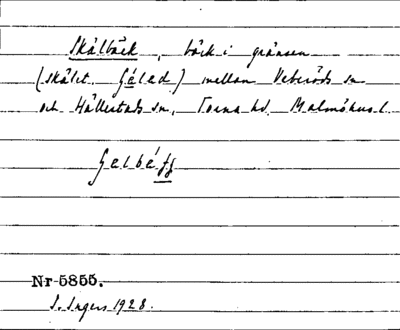 Skälbäck, bäck i gränsen
(skålst. Gåled) mellan Veberöds sn
och Hällestads sn, Torna hd. Malmöhus l.
Nr 5855.
I. Ingers 1928.